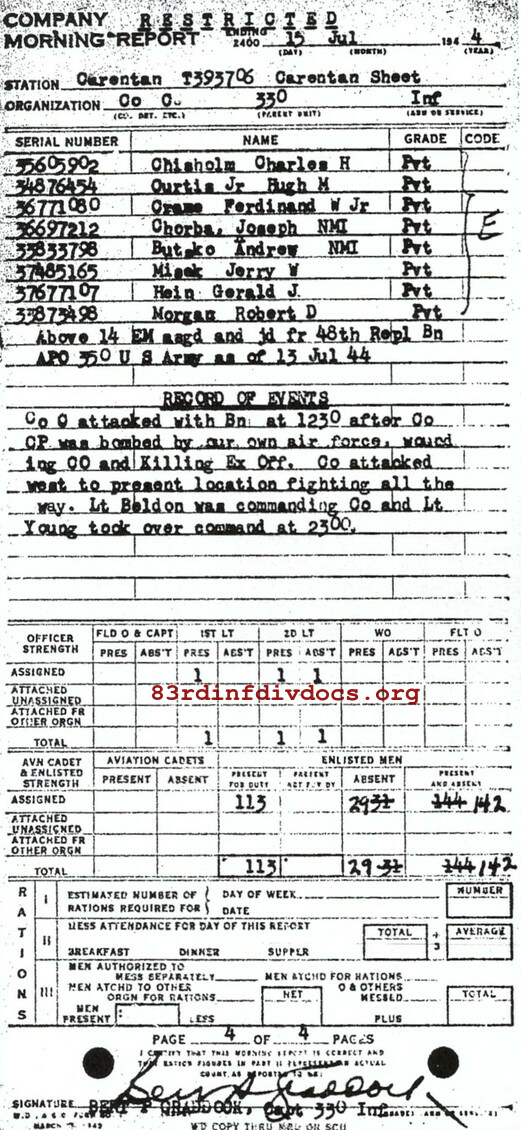 COMPANY RESTRICTED
MORNING REPORT ENDING 2400 15 Jul 1944
(DAY) (MONTH) (YEAR)
STATION Carentan T393706 Carentan Sheet
ORGANIZATION Co C. 330 Inf
(CO. DET. ETC.) (PARENT UNIT) (ARM OR SERVICE)
SERIAL NUMBER NAME GRADE CODE
35605902 Chisholm Charles H Pvt
34876454 Curtis Jr Hugh M Pvt
36771080 Crame Ferdinand W Jr Pvt
36697212 Chorba, Joseph NMI Pvt E
33833798 Butsko Andrew NMI Pvt
37485165 Misek Jerry W Pvt
37677107 Hein Gerald J. Pvt
33873498 Morgan Robert D Pvt
Above 14 EM asgd and jd fr 48th Repl Bn
APO 350 U S Army as of 13 Jul 44
RECORD OF EVENTS
Co C attacked with Bn at 1230 after Co
CP was bombed by our own air force, wound
ing CO and Killing Ex Off. Co attacked
west to present location fighting all the
way. Lt Beldon was commanding Co and Lt
Young took over command at 2300.
OFFICER STRENGTH FLD O & CAPT 1ST LT 2D LT WO FLT O
PRES ABS'T PRES ABS'T PRES ABS'T PRES ABS'T PRES ABS'T
ASSIGNED 1 1 1
ATTACHED UNASSIGNED
83rdinfdivdocs.org
ATTACHED FR OTHER ORGN
TOTAL 1 1 1
AVN CADET & ENLISTED STRENGTH AVIATION CADETS ENLISTED MEN
PRESENT ABSENT PRESENT FOR DUTY PRESENT NOT F'R DY ABSENT PRESENT AND ABSENT
ASSIGNED 113 29 31 144 142
ATTACHED UNASSIGNED
ATTACHED FR OTHER ORGN
TOTAL 113 29 31 144 142
RATIONS
I ESTIMATED NUMBER OF RATIONS REQUIRED FOR DAY OF WEEK DATE NUMBER
II MESS ATTENDANCE FOR DAY OF THIS REPORT TOTAL ÷ 3 AVERAGE
BREAKFAST DINNER SUPPER
III MEN AUTHORIZED TO MESS SEPARATELY MEN ATCHD FOR RATIONS
MEN ATCHD TO OTHER ORGN FOR RATIONS NET O & OTHERS MESSED TOTAL
MEN PRESENT: LESS PLUS
PAGE 4 OF 4 PAGES
I CERTIFY THAT THIS MORNING REPORT IS CORRECT AND
THAT RATION FIGURES IN PART II REPRESENT AN ACTUAL
COUNT, AS REPORTED TO ME.
SIGNATURE BERT P CRADDOCK, Capt 330 Inf
W.D., A.G.O. FORM NO. 1
W D COPY THRU MRU OR SCU